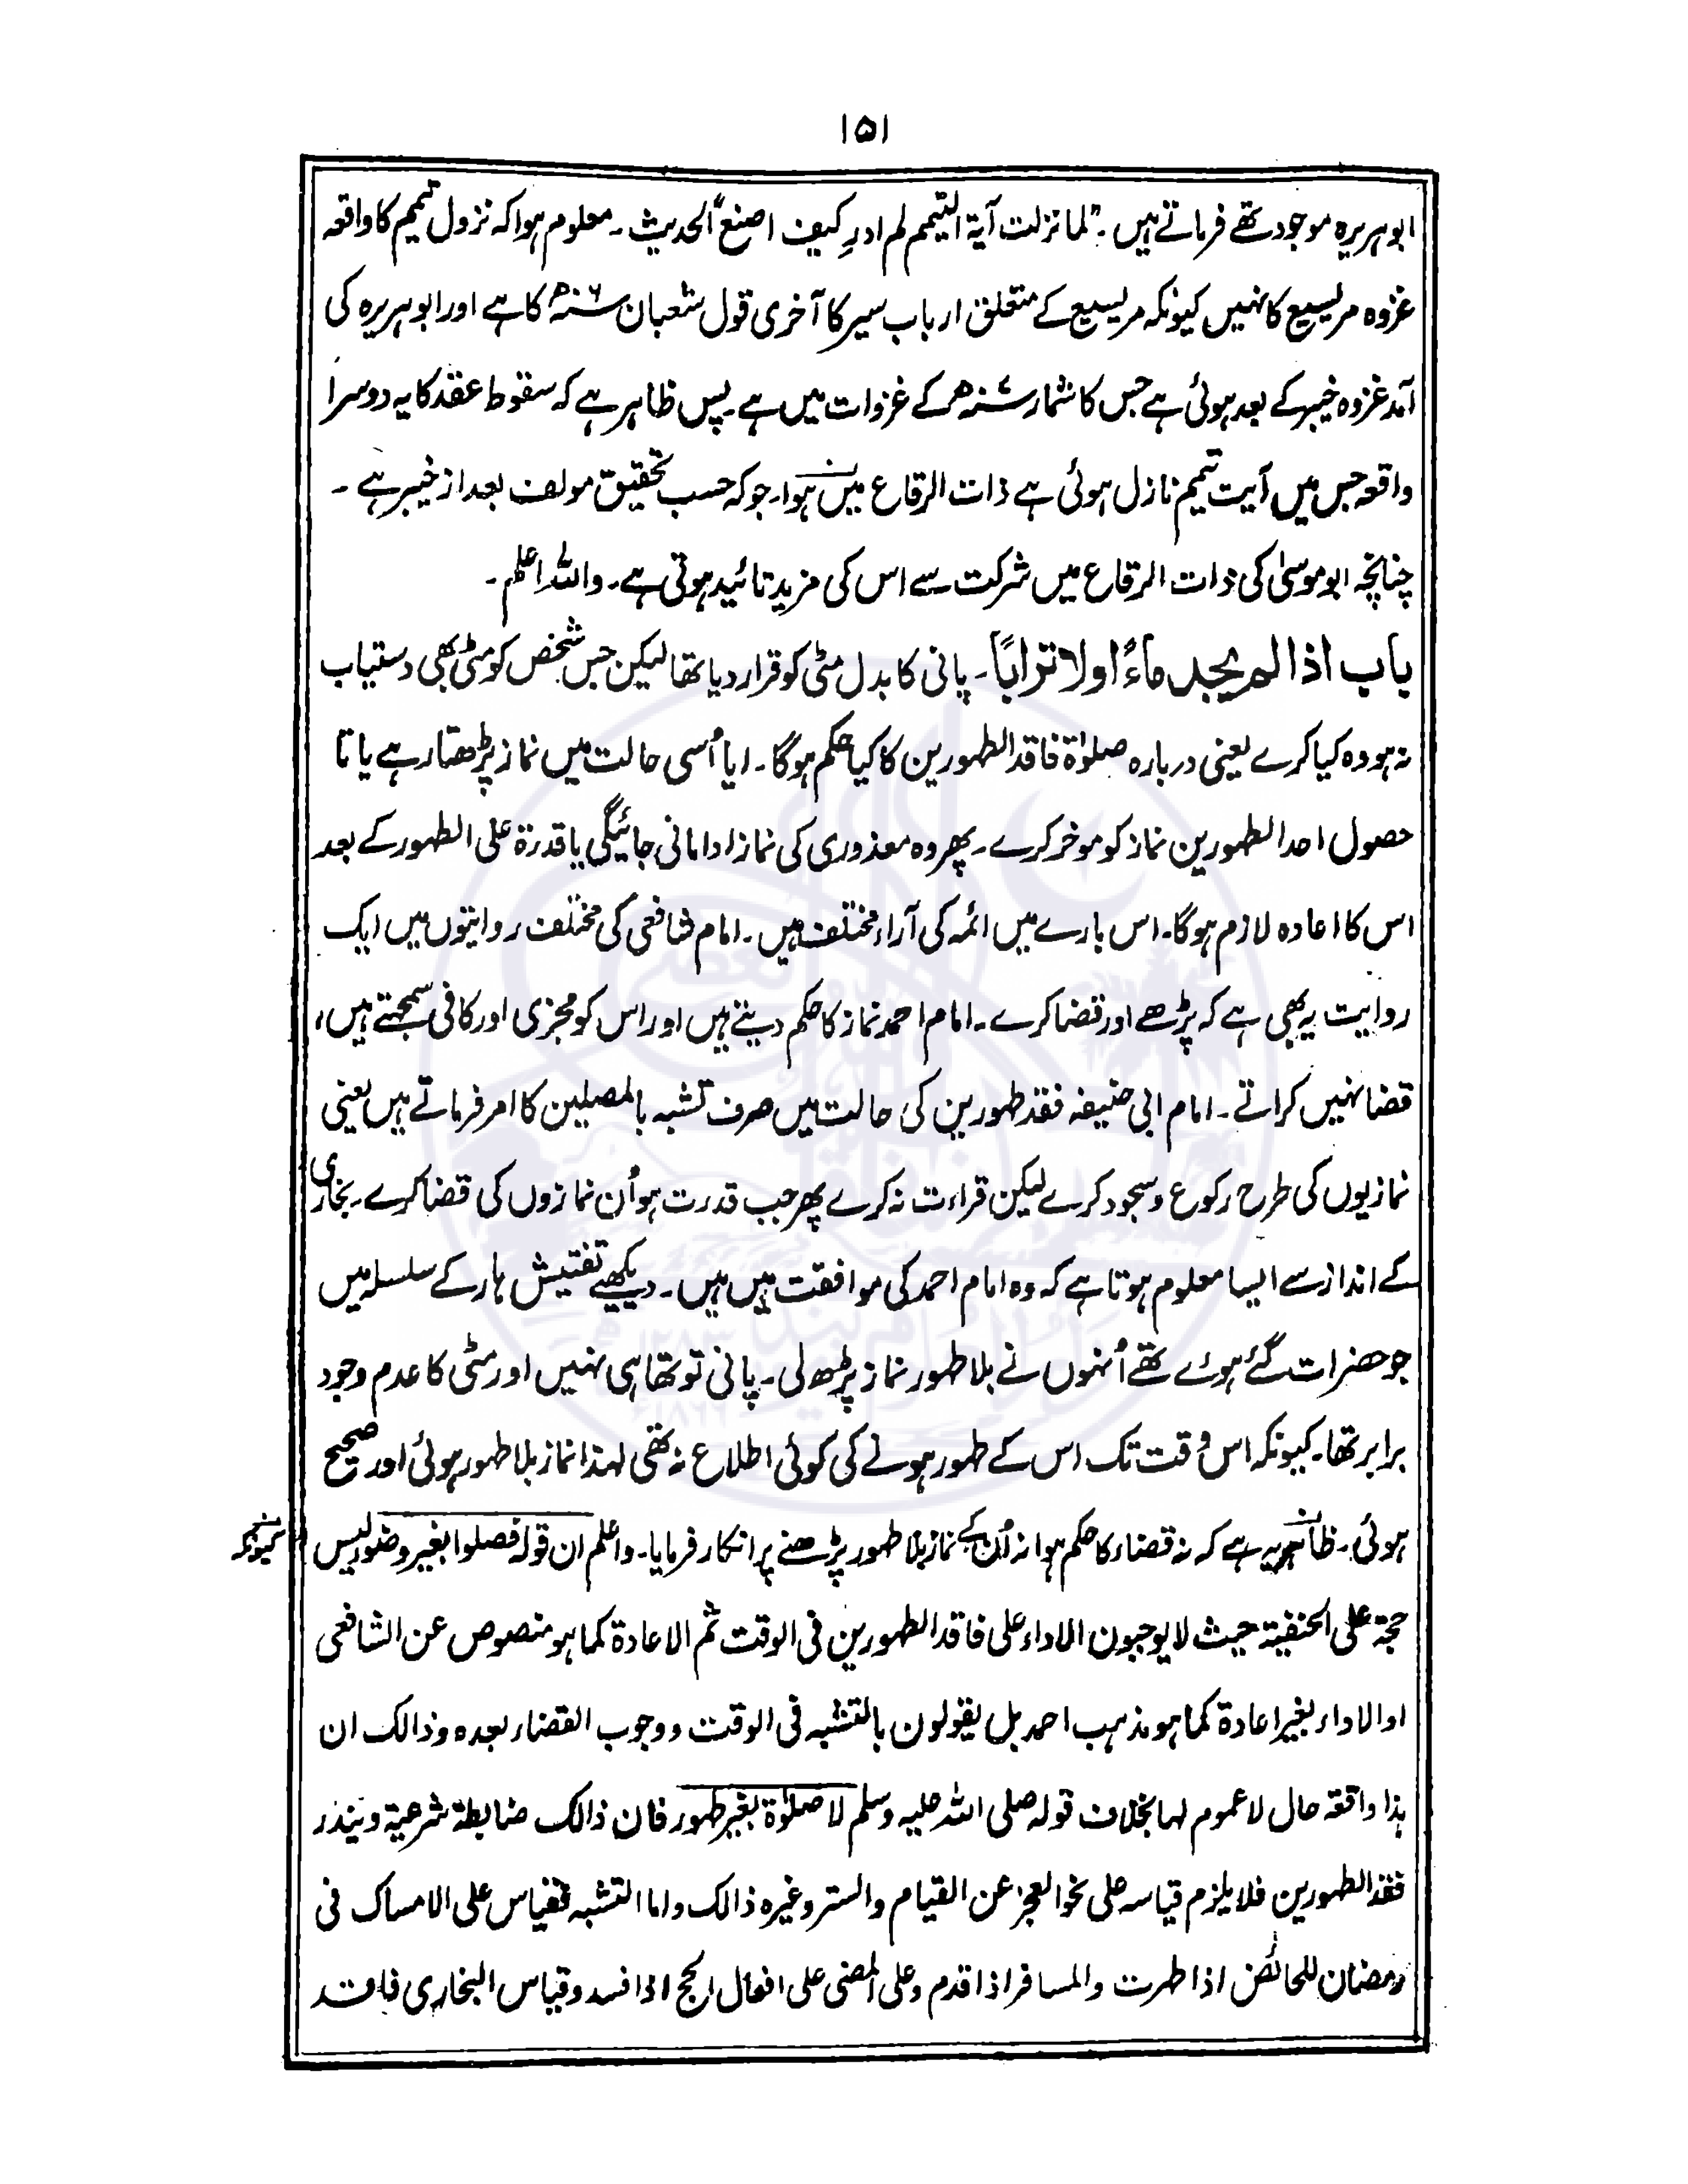 ۱۵۱
ابوہریرہ موجود تھے فرماتے ہیں۔ "لما نزلت آیۃ التیمم لم ادر کیف اصنع" الحدیث۔ معلوم ہوا کہ نزول تیمم کا واقعہ
غزوہ مریسیع کا نہیں کیونکہ مریسیع کے متعلق ارباب سیر کا آخری قول شعبان ۶ھ کا ہے اور ابوہریرہ کی
آمد غزوہ خیبر کے بعد ہوئی ہے جس کا شمار ۷ھ کے غزوات میں ہے۔ پس ظاہر ہے کہ سقوط عقد کا یہ دوسرا
واقعہ جس میں آیت تیمم نازل ہوئی ہے ذات الرقاع میں ہوا۔ جو کہ حسب تحقیق مولف بعد از خیبر ہے۔
چنانچہ ابو موسیٰ کی ذات الرقاع میں شرکت سے اس کی مزید تائید ہوتی ہے۔ واللہ اعلم۔
باب اذا لم یجد ماءً اولا تراباً۔ پانی کا بدل مٹی کو قرار دیا تھا لیکن جس شخص کو مٹی بھی دستیاب
نہ ہو وہ کیا کرے یعنی دربارہ صلوٰۃ فاقد الطہورین کا کیا حکم ہوگا۔ ایا اُسی حالت میں نماز پڑھتا رہے یا تا
حصول احد الطہورین نماز کو موخر کرے۔ پھر وہ معذوری کی نماز ادا مانی جائیگی یا قدرۃ علی الطہور کے بعد
اس کا اعادہ لازم ہوگا۔ اس بارے میں ائمہ کی آراء مختلف ہیں۔ امام شافعی کی مختلف روایتوں میں ایک
روایت یہ بھی ہے کہ پڑھے اور قضا کرے۔ امام احمد نماز کا حکم دیتے ہیں اور اس کو مجزی اور کافی سمجھتے ہیں،
قضا نہیں کراتے۔ امام ابی حنیفہ فقد طہورین کی حالت میں صرف تشبہ بالمصلین کا امر فرماتے ہیں یعنی
نمازیوں کی طرح رکوع و سجود کرے لیکن قراءت نہ کرے پھر جب قدرت ہو اُن نمازوں کی قضا کرے۔ بخاری
کے انداز سے ایسا معلوم ہوتا ہے کہ وہ امام احمد کی موافقت میں ہیں۔ دیکھیے تفتیش ہار کے سلسلہ میں
جو حضرات گئے ہوئے تھے اُنہوں نے بلا طہور نماز پڑھ لی۔ پانی تو تھا ہی نہیں اور مٹی کا عدم وجود
برابر تھا۔ کیونکہ اس وقت تک اس کے طہور ہونے کی کوئی اطلاع نہ تھی لہذا نماز بلا طہور ہوئی اور صحیح
ہوئی۔ ظاہر یہ ہے کہ نہ قضاء کا حکم ہوا نہ اُن کے نماز بلا طہور پڑھنے پر انکار فرمایا۔ واعلم ان قولہ فصلوا بغیر وضوء لیس
کیونکہ
حجۃ علی الحنفیۃ حیث لا یوجبون الاداء علی فاقد الطہورین فی الوقت ثم الاعادۃ کما ہو منصوص عن الشافعی
او الاداء بغیر اعادۃ کما ہو مذہب احمد بل یقولون بالتشبہ فی الوقت ووجوب القضاء بعدہ وذالک ان
ہذا واقعۃ حال لا عموم لہا بخلاف قولہ صلی اللہ علیہ وسلم لا صلوٰۃ بغیر طہور فان ذالک ضابطۃ شرعیۃ ویندر
فقد الطہورین فلا یلزم قیاسہ علی نحو العجز عن القیام والستر وغیرہ ذالک واما التشبہ فقیاس علی الامساک فی
رمضان للحائض اذا طہرت والمسافر اذا قدم وعلی المضی علی افعال الحج اذا فسد وقیاس البخاری فاقد